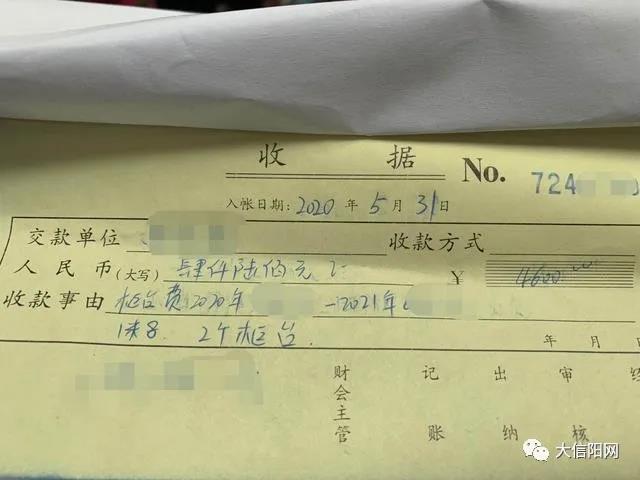 收 据
No. 724
入帐日期:2020年5月31日
交款单位 收款方式
人民币(大写) 肆仟陆佰元 ¥ 4600.00
收款事由 柜台费2020年 -2021年
2个柜台.
年 月 日
财会主管 记账 出纳 审核 经
大信阳网